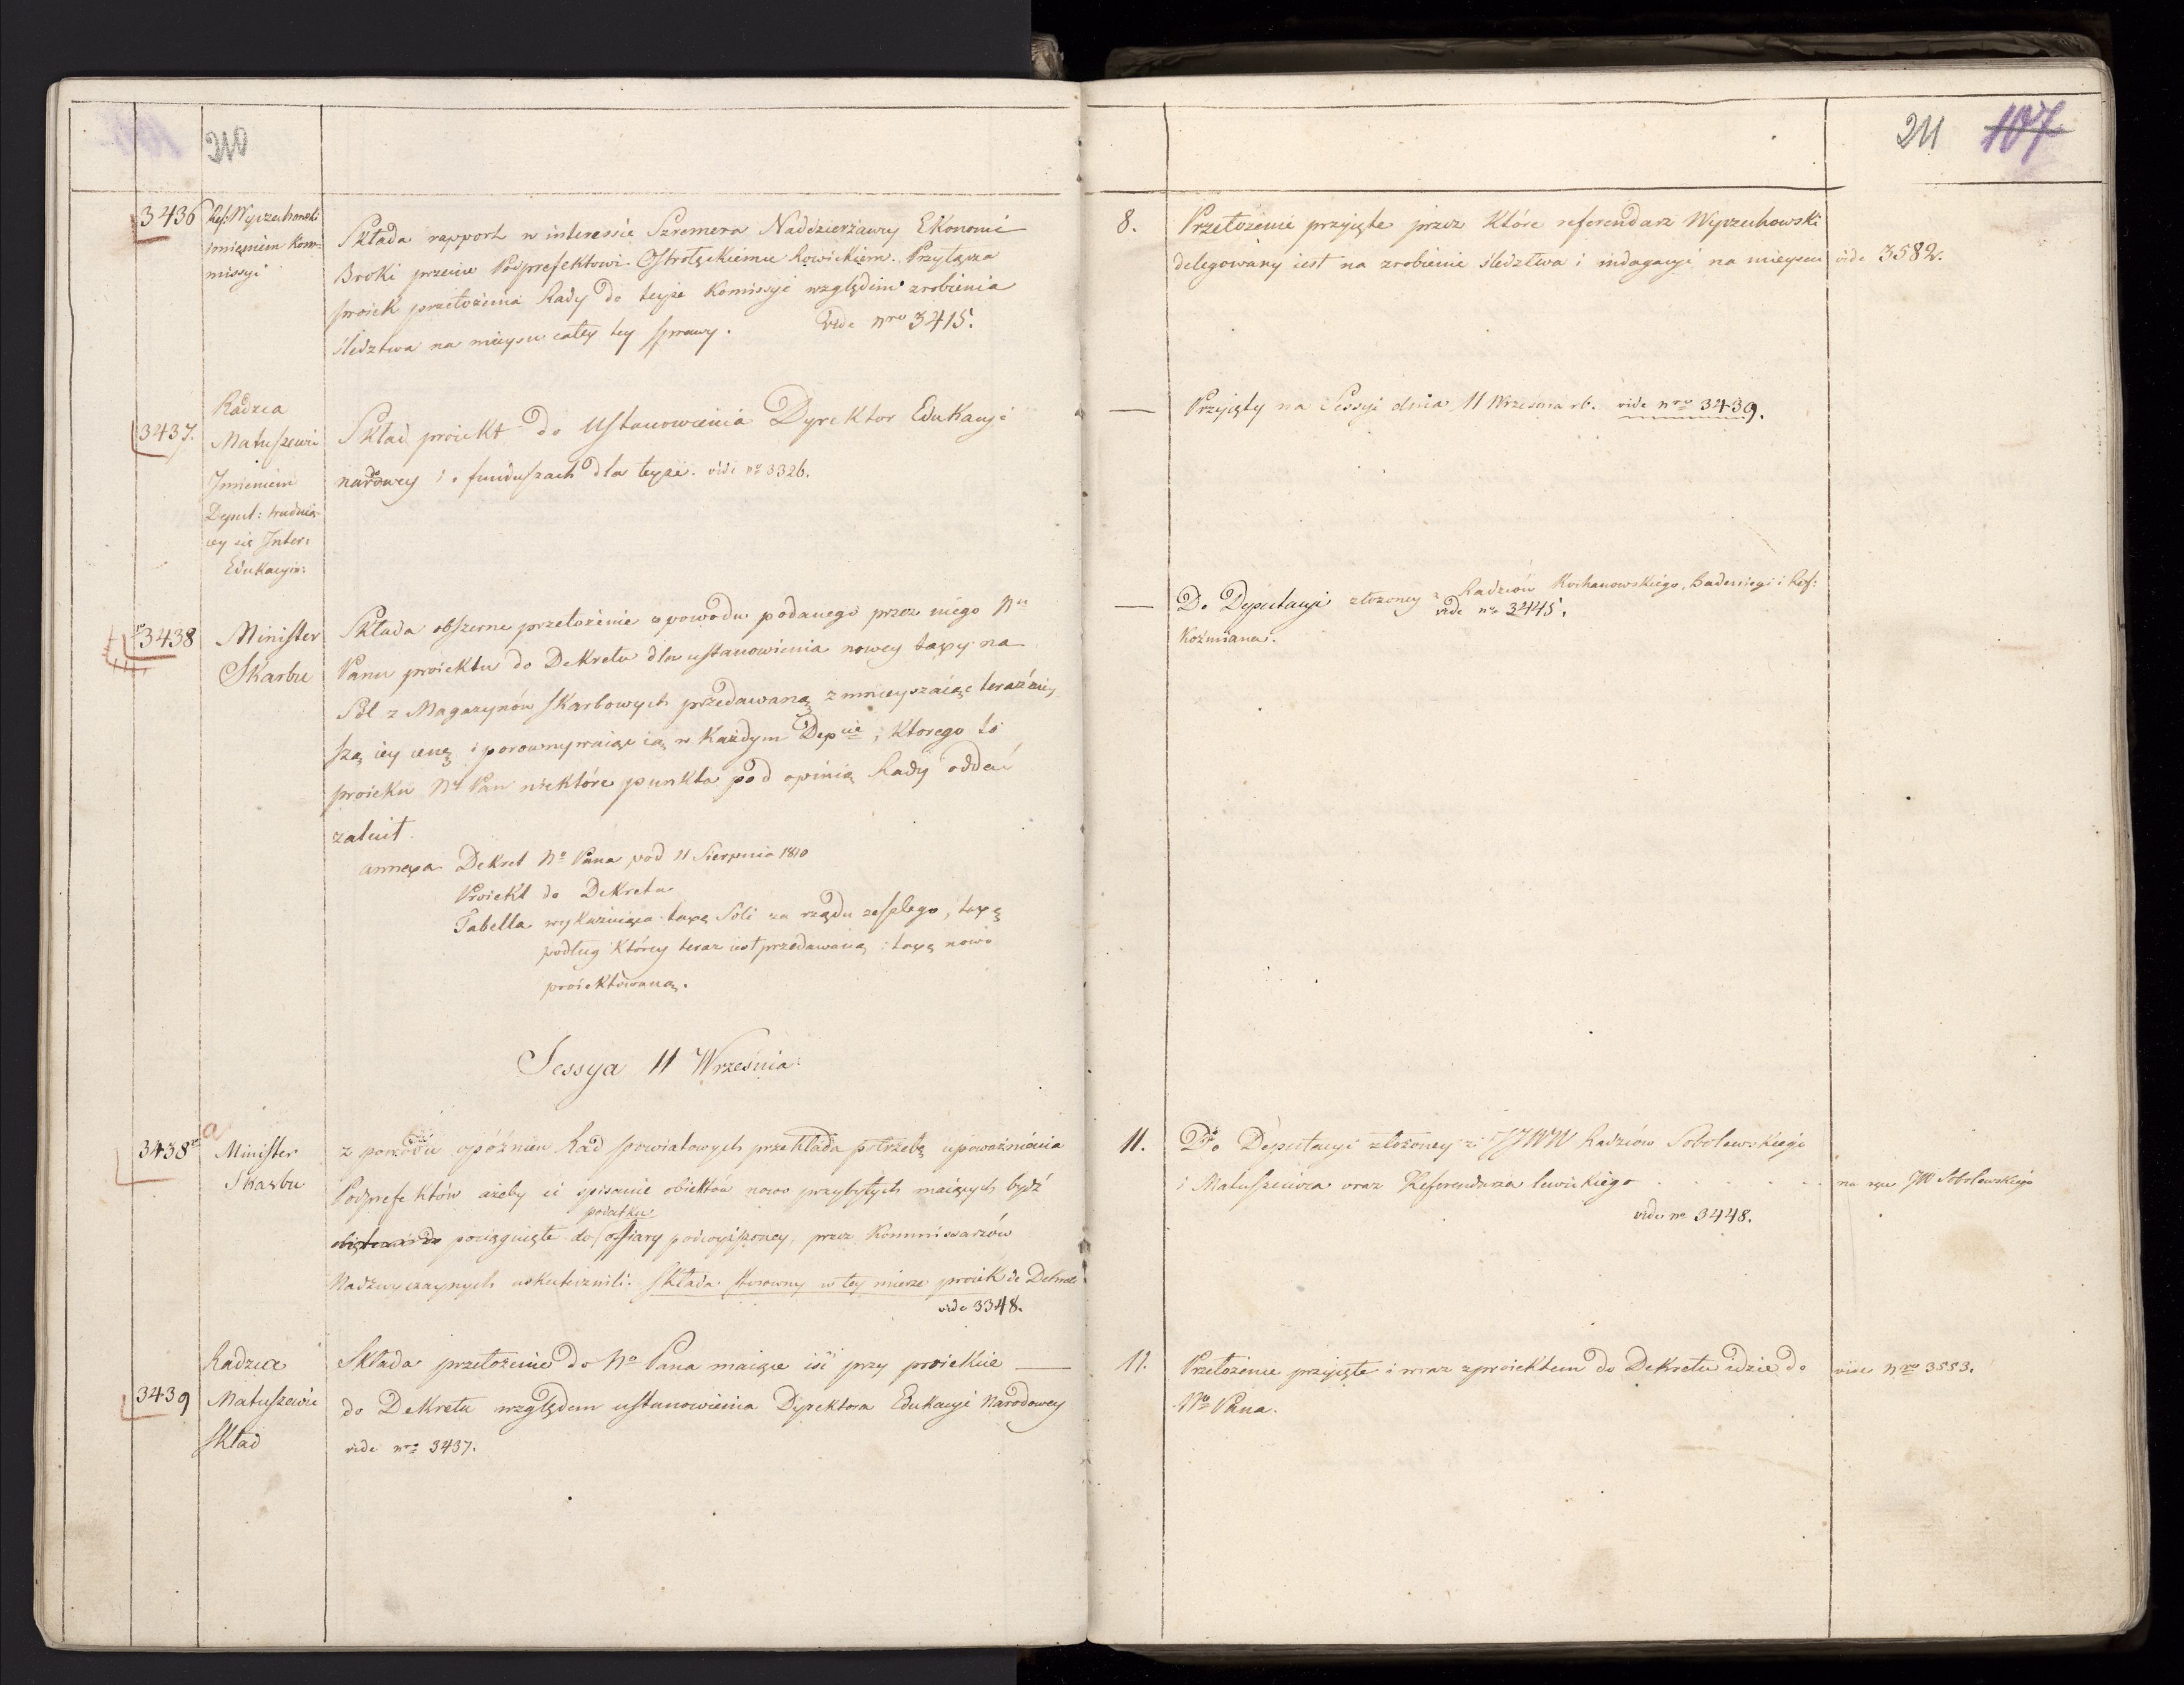 210
3436
Ref: Wyczechowski
imieniem Kom=
missyi
Składa rapport w interessie Szremera Naddzierżawcy Ekonomii
Broki przeciw Podprefektowi Ostrołęckiemu Łowickiem. Przyłącza
proiekt przełożenia Rady do teyże Komissyi względem zrobienia
śledztwa na mieyscu całey tey sprawy. Vide nro 3415.
3437.
Radzca
Matuszewic
Jmieniem
Deput: trudnią=
cey się Inter:
Edukacyin:
Skład proiekt do Ustanowienia Dyrektor Edukacyi
narodowey i o funduszach dla teyże. vide no 3326.
3438
Minister
Skarbu
Składa obszerne przełożenie z powodu podanego przez niego Nu
Panu proiektu do Dekretu dla ustanowienia nowey taxy na
Sól z Magazynów skarbowych przedawaną zmnieyszaiąc teraźniey
szą iey cenę i porównywaiąc ią w każdym Depcie, którego to
proiektu Ny Pan niektóre punkta pod opinią Rady oddać
zalecił.
annexa Dekret No Pana pod 11 Sierpnia 1810
Proiekt do Dekretu
Tabella wykazuiąca taxę Soli za rządu zeszłego, taxę
podług którey teraz iest przedawaną i taxę nowo
proiektowaną.
Sessya 11 Września.
3438
a
Minister
Skarbu
z powodu opóźnień Rad powiatowych przekłada potrzebę upoważnienia
Podprefektów ażeby ci spisanie obiektów nowo przybyłych maiących bydź
podatku
pociągnięte do ofiary podwyższoney, przez Kommissarzów
Nadzwyczaynych uskutecznili. Składa stosowny w tey mierze proiekt do Dekretu
vide 3348.
3439
Radzca
Matuszewic
skład
Składa przełożenie do No Pana maiące iść przy proiekcie
do Dekretu względem ustanowienia Dyrektora Edukacyi Narodowey
vide nro 3437.
211 107
8.
Przełożenie przyięte przez które referendarz Wyczechowski
delegowany iest na zrobienie śledztwa i indagacyi na mieyscu
vide 3582.
Przyięty na Sessyi dnia 11 Września rb. vide nro 3439.
Do Deputacyi złożoney z Radzców Kochanowskiego, Badeniego i Ref:
vide no 3445.
Koźmiana.
11.
Do Deputacyi złożoney z JJWW Radzców Sobolewskiego
i Matuszewica oraz Referendarza Lewickiego
na ręce JW Sobolewskiego
vide no 3448.
11.
Przełożenie przyięte i wraz z proiektem do Dekretu idzie do
No Pana.
vide Nro 3553.